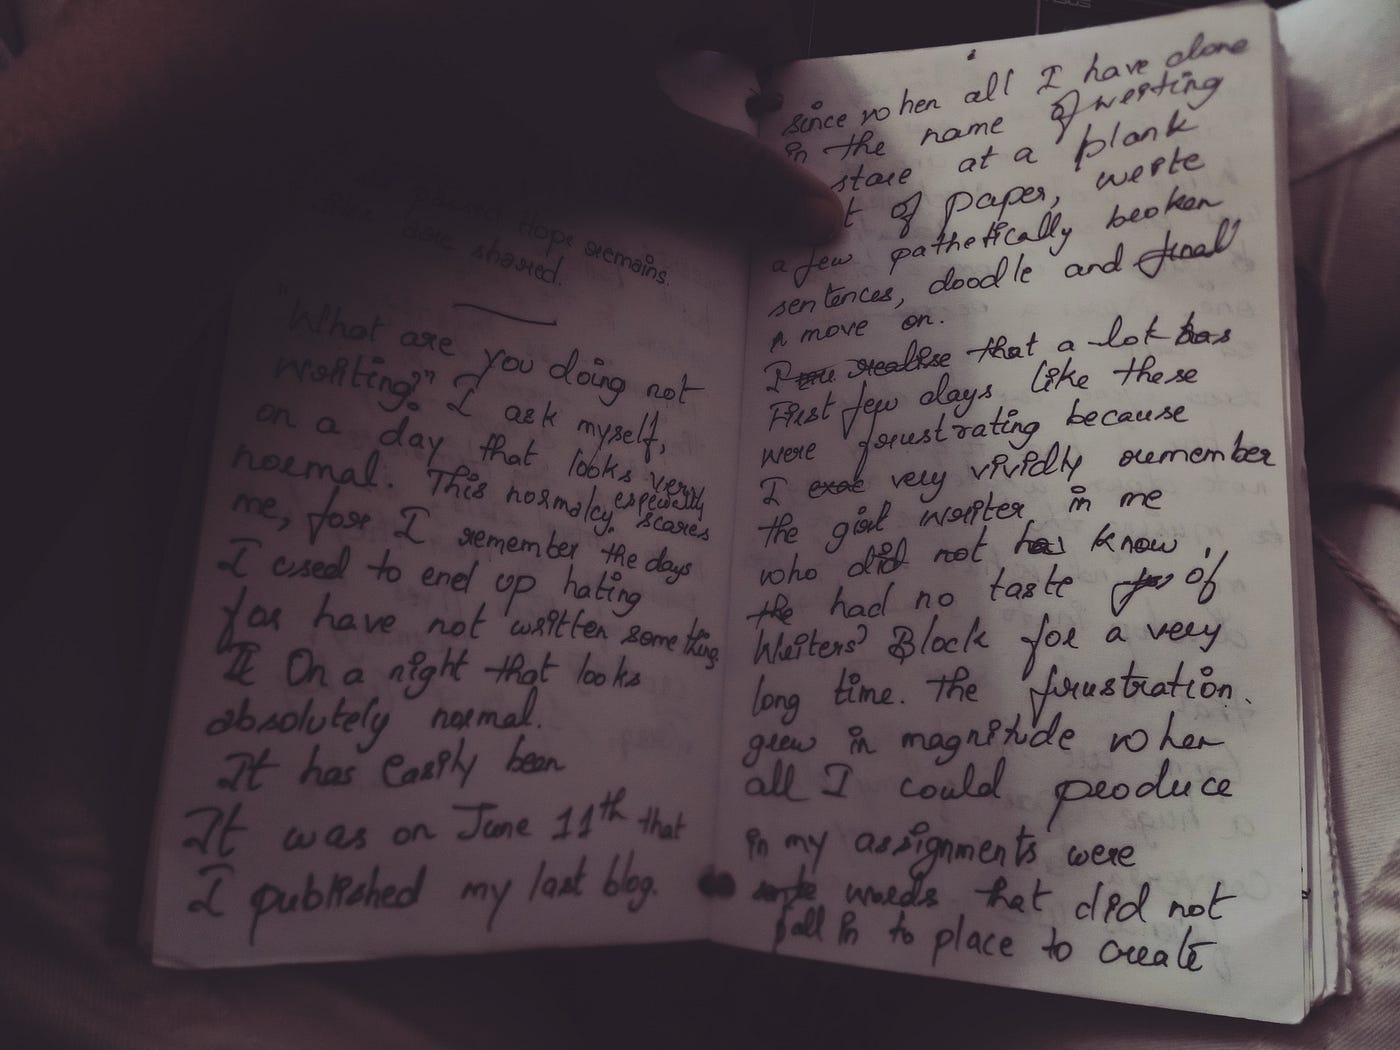 hope remains.
are shared.
"What are you doing not
writing?" I ask myself,
on a day that looks very
normal. This normalcy especially scares
me, for I remember the days
I used to end up hating
for have not written something.
It On a night that looks
absolutely normal.
It has easily been
It was on June 11th that
I published my last blog.
since when all I have done
in the name of writing
stare at a blank
of paper, write
a few pathetically broken
sentences, doodle and final
n move on.
I realise that a lot has
First few days like these
were frustrating because
I very vividly remember
the girl writer in me
who did not has know,
the had no taste for of
Writers' Block for a very
long time. The frustration
grew in magnitude when
all I could produce
in my assignments were
words that did not
fall in to place to create